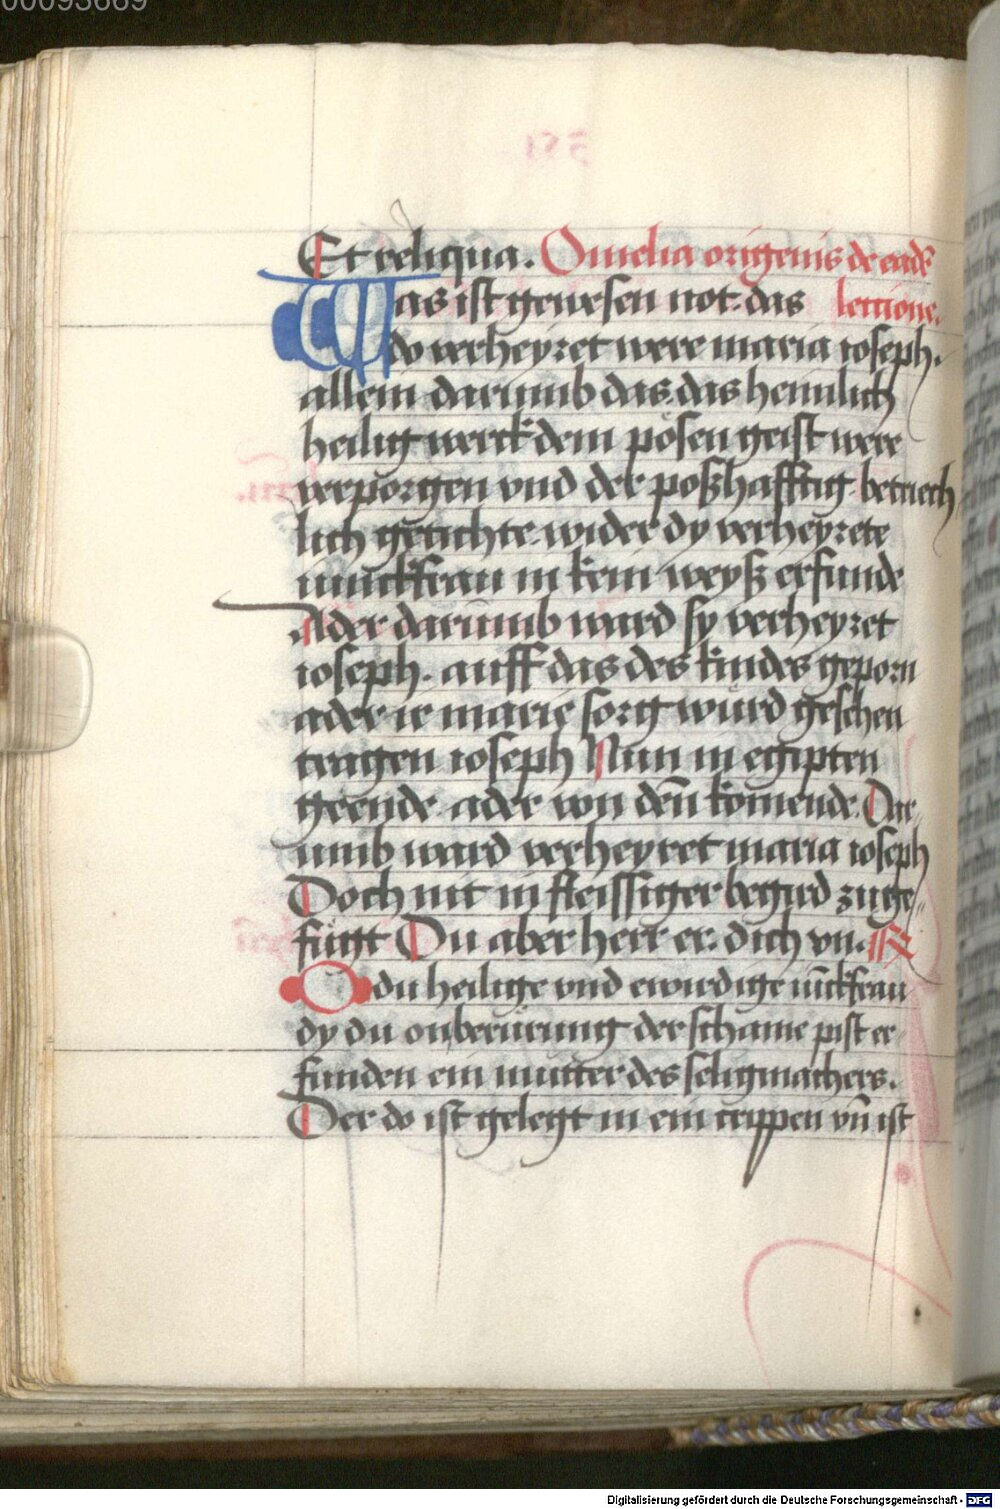 00093669
Et reliqua. Omelia origenis de eadē
Was ist gewesen not. das lectione.
do verheyret were maria ioseph.
allein darumb das. das heimlich
heilig werck dem pösen geist were
verporgen vnd der poßhafftig betriech
lich getichte wider dy verheyrete
iunckfrau in kein weyß erfunde
Ader darumb ward sy verheyret
ioseph. auff das des kindes geporn
ader ie marie sorg wurd geschen
tragen ioseph Nun in egipten
geende ader von dēn komende. Dar
umb ward verheyret maria ioseph
Doch nit in fleissiger begird zu ge„
fugt Du aber herr er. dich vn. R
O du heilige vnd erwirdige iūckfrau
dy du onberürung der schame pist er
funden ein mutter des seligmachers.
Der do ist gelegt in ein crippen vn̄ ist
Digitalisierung gefördert durch die Deutsche Forschungsgemeinschaft - DFG